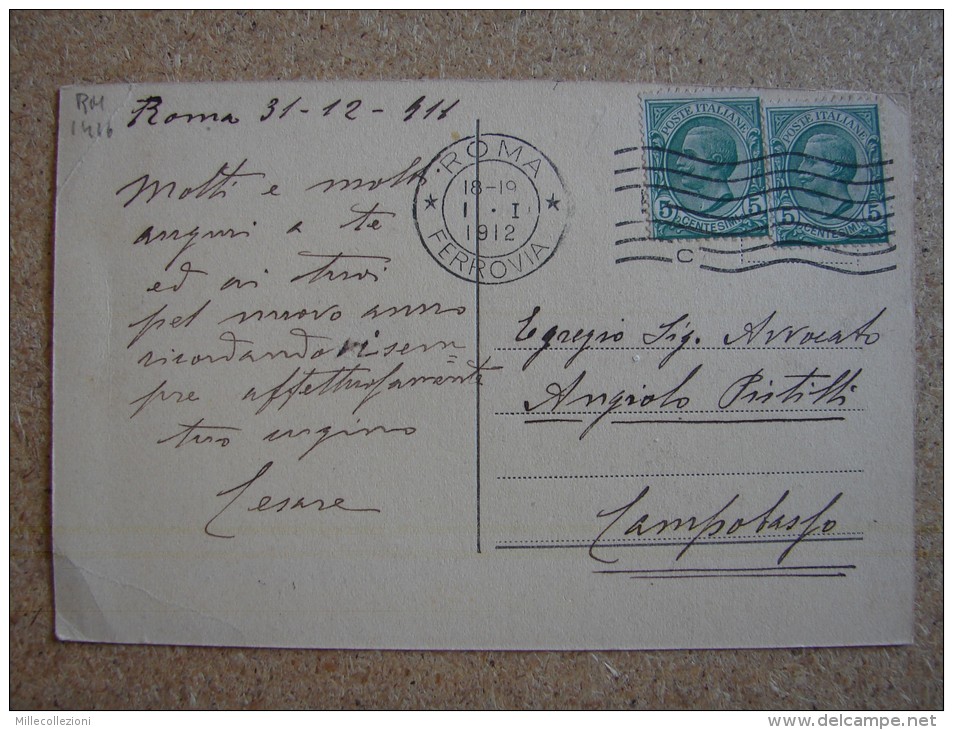 RM
1416
Roma 31-12-911
Molti e molti
auguri a te
ed ai tuoi
pel nuovo anno
ricordandovi sem=
pre affettuosamente
tuo cugino
Cesare
ROMA
18-19
1 · I
1912
FERROVIA
POSTE ITALIANE
5 CENTESIMI 5
POSTE ITALIANE
5 CENTESIMI 5
C
Egregio Sig. Avvocato
Angiolo Pistilli
Campobasso
Millecollezioni
http://www.delcampe.net